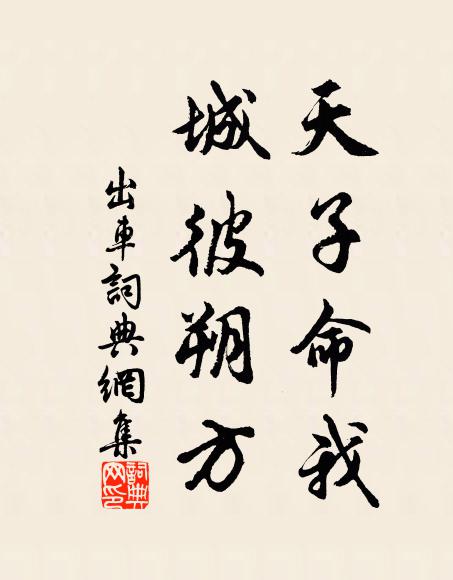 天子命我
城彼朔方
出車詞典網集
詞典网印